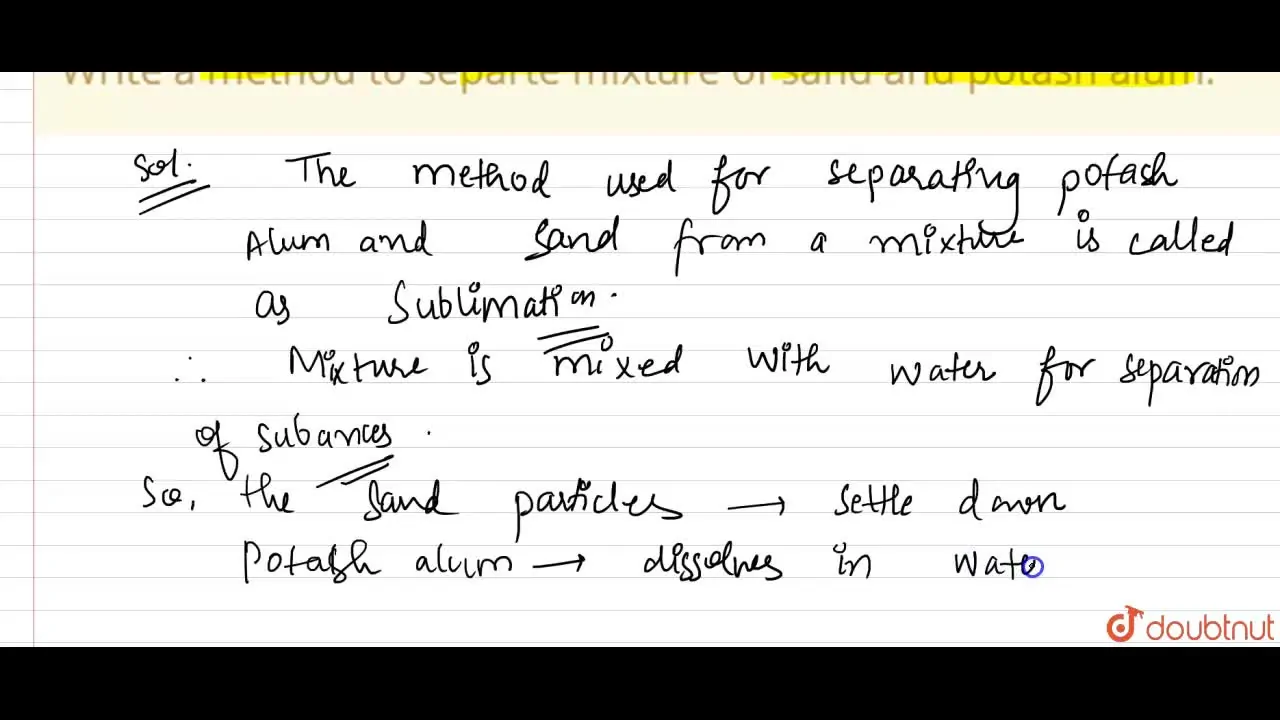 Write a method to separte mixture of sand and potash alum.
Sol. The method used for separating potash
Alum and sand from a mixture is called
as Sublimation.
∴ Mixture is mixed with water for separation
of subances.
So, the sand particles → settle down
Potash alum → dissolves in wate
doubtnut